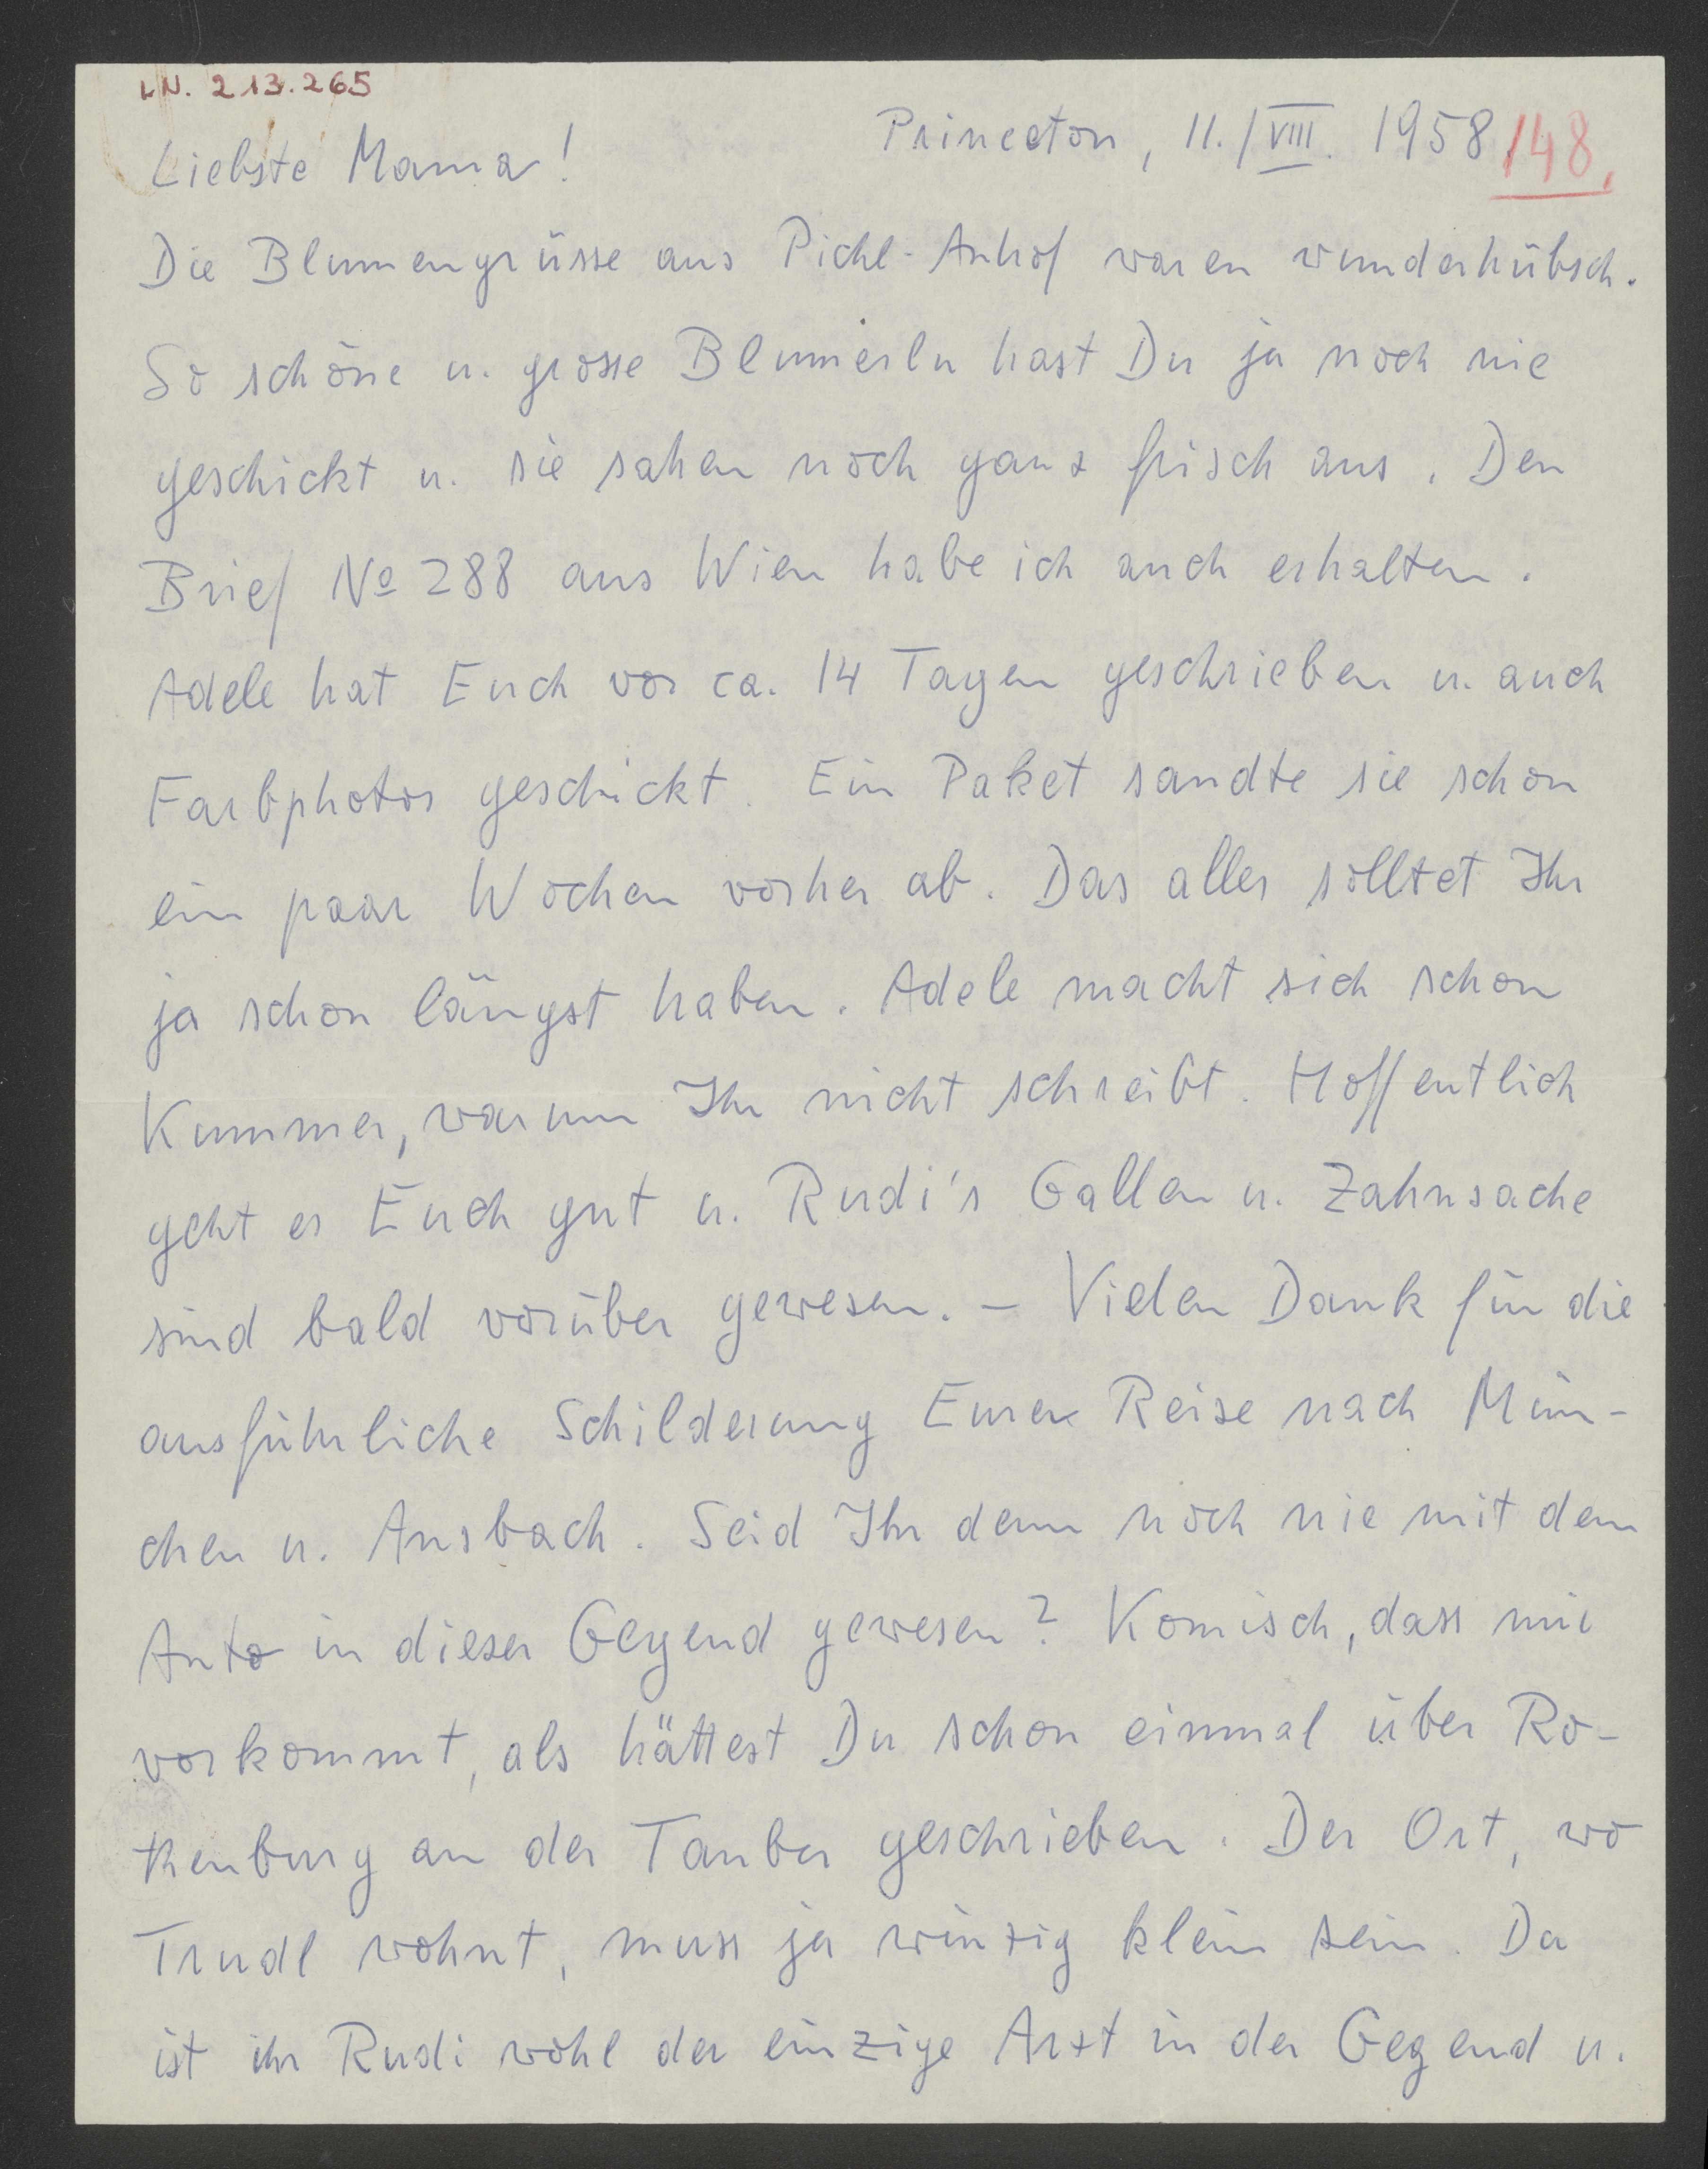 I.N. 213.265
Princeton, 11./VIII. 1958 148.
Liebste Mama!
Die Blumengrüsse aus Pichl-Anhof waren wunderhübsch.
So schöne u. grosse Blumerln hast Du ja noch nie
geschickt u. sie sahen noch ganz frisch aus. Den
Brief № 288 aus Wien habe ich auch erhalten.
Adele hat Euch vor ca. 14 Tagen geschrieben u. auch
Farbphotos geschickt. Ein Paket sandte sie schon
ein paar Wochen vorher ab. Das alles solltet Ihr
ja schon längst haben. Adele macht sich schon
Kummer, warum Ihr nicht schreibt. Hoffentlich
geht es Euch gut u. Rudi's Gallen u. Zahnsache
sind bald vorüber gewesen. – Vielen Dank für die
ausführliche Schilderung Eurer Reise nach Mün-
chen u. Ansbach. Seid Ihr denn noch nie mit dem
Auto in dieser Gegend gewesen? Komisch, dass mir
vorkommt, als hättest Du schon einmal über Ro-
thenburg an der Tauber geschrieben. Der Ort, wo
Trudl wohnt, muss ja winzig klein sein. Da
ist ihr Rudi wohl der einzige Arzt in der Gegend u.